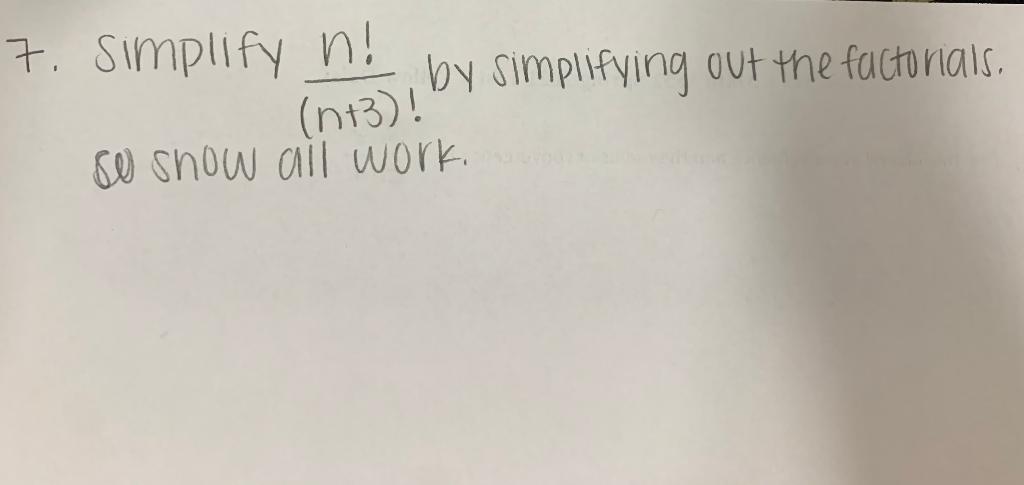 7. Simplify n!/(n+3)! by simplifying out the factorials.
show all work.